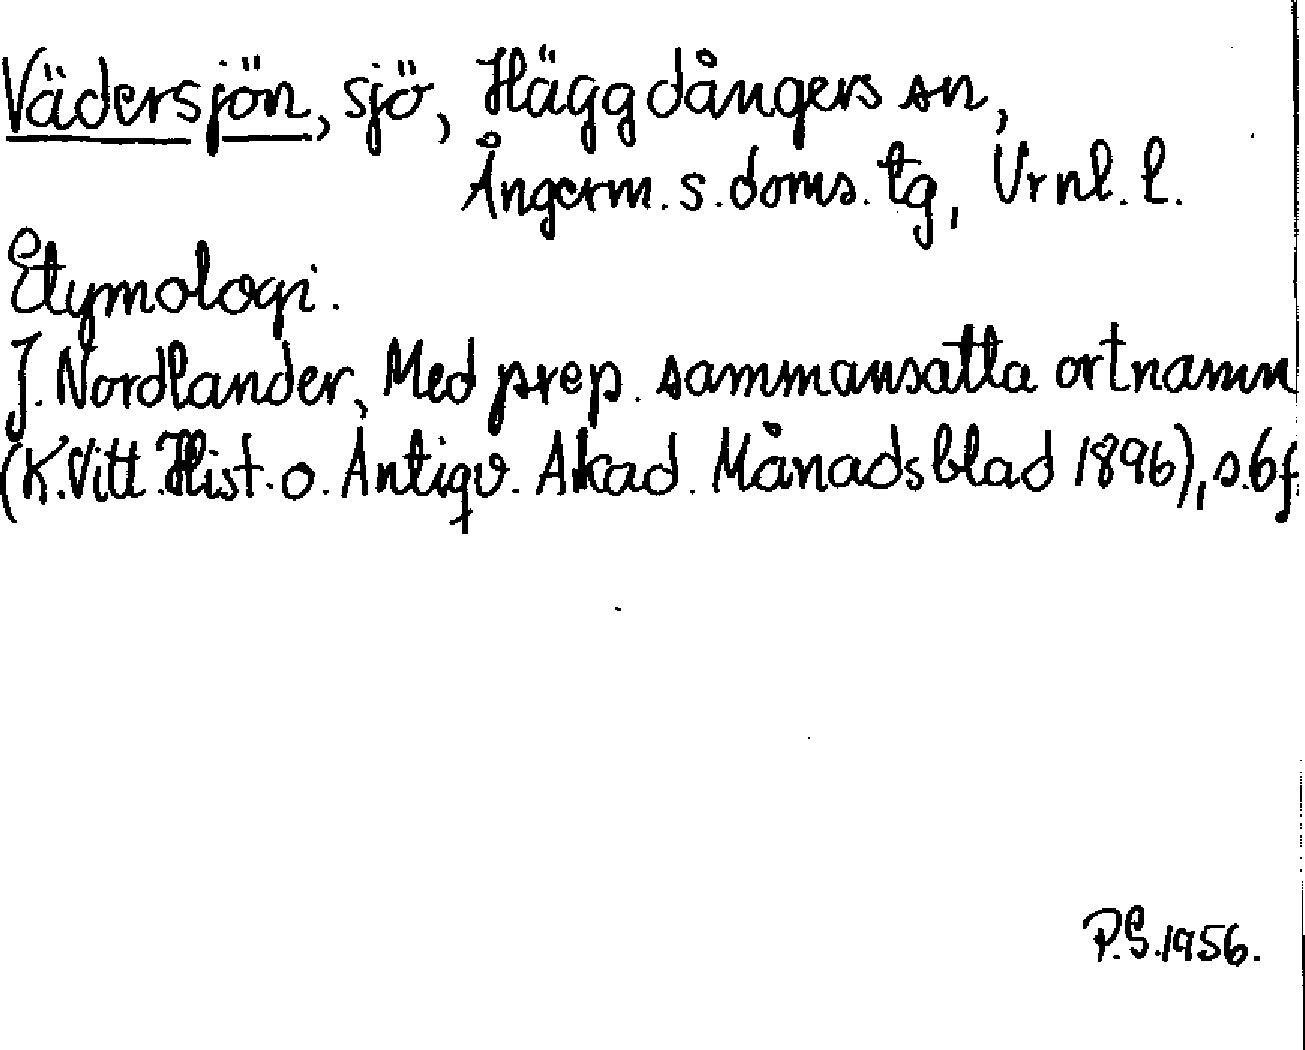 Vädersjön, sjö, Häggdångers sn,
Ångerm. s. doms. tg, Vrnl. l.
Etymologi.
J. Nordlander, Med prep. sammansatta ortnamn
(K. Vitt. Hist. o. Antiqv. Akad. Månadsblad 1896), s. 6 f
P.S. 1956.